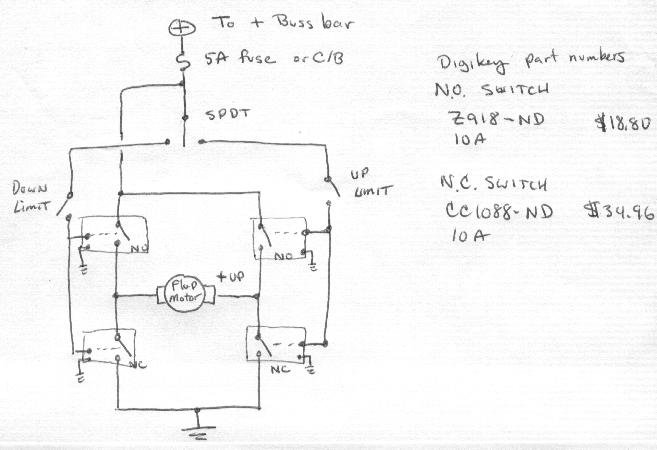 + To + Buss bar
5A fuse or C/B
SPDT
DOWN
LIMIT
UP
LIMIT
NO
NO
Flap
motor
+UP
NC
NC
Digikey part numbers
N.O. SWITCH
Z918-ND $18.80
10A
N.C. SWITCH
CC1088-ND $34.96
10A